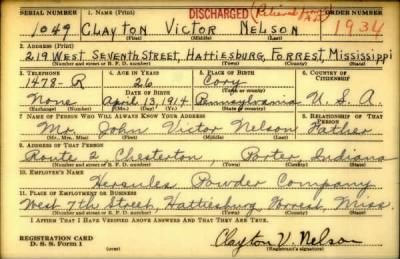 SERIAL NUMBER 1. NAME (Print) DISCHARGED ORDER NUMBER
1049 CLAYTON VICTOR NELSON 1934
(First) (Middle) (Last)
2. ADDRESS (Print)
219 WEST SEVENTH STREET, HATTIESBURG, FORREST, MISSISSIPPI
(Number and street or R. F. D. number) (Town) (County) (State)
3. TELEPHONE 4. AGE IN YEARS 5. PLACE OF BIRTH 6. COUNTRY OF CITIZENSHIP
1478-R 26 Corry
DATE OF BIRTH (Town or county)
None April 13, 1914 Pennsylvania U. S. A.
(Exchange) (Number) (Mo.) (Day) (Yr.) (State or country)
7. NAME OF PERSON WHO WILL ALWAYS KNOW YOUR ADDRESS 8. RELATIONSHIP OF THAT PERSON
Mr. John Victor Nelson Father
(Mr., Mrs., Miss) (First) (Middle) (Last)
9. ADDRESS OF THAT PERSON
Route 2 Chesterton, Porter, Indiana
(Number and street or R. F. D. number) (Town) (County) (State)
10. EMPLOYER'S NAME
Hercules Powder Company
11. PLACE OF EMPLOYMENT OR BUSINESS
West 7th Street, Hattiesburg Forrest, Miss.
(Number and street or R. F. D. number) (Town) (County) (State)
I AFFIRM THAT I HAVE VERIFIED ABOVE ANSWERS AND THAT THEY ARE TRUE.
REGISTRATION CARD
D. S. S. Form 1 (over) Clayton V. Nelson
(Registrant's signature)